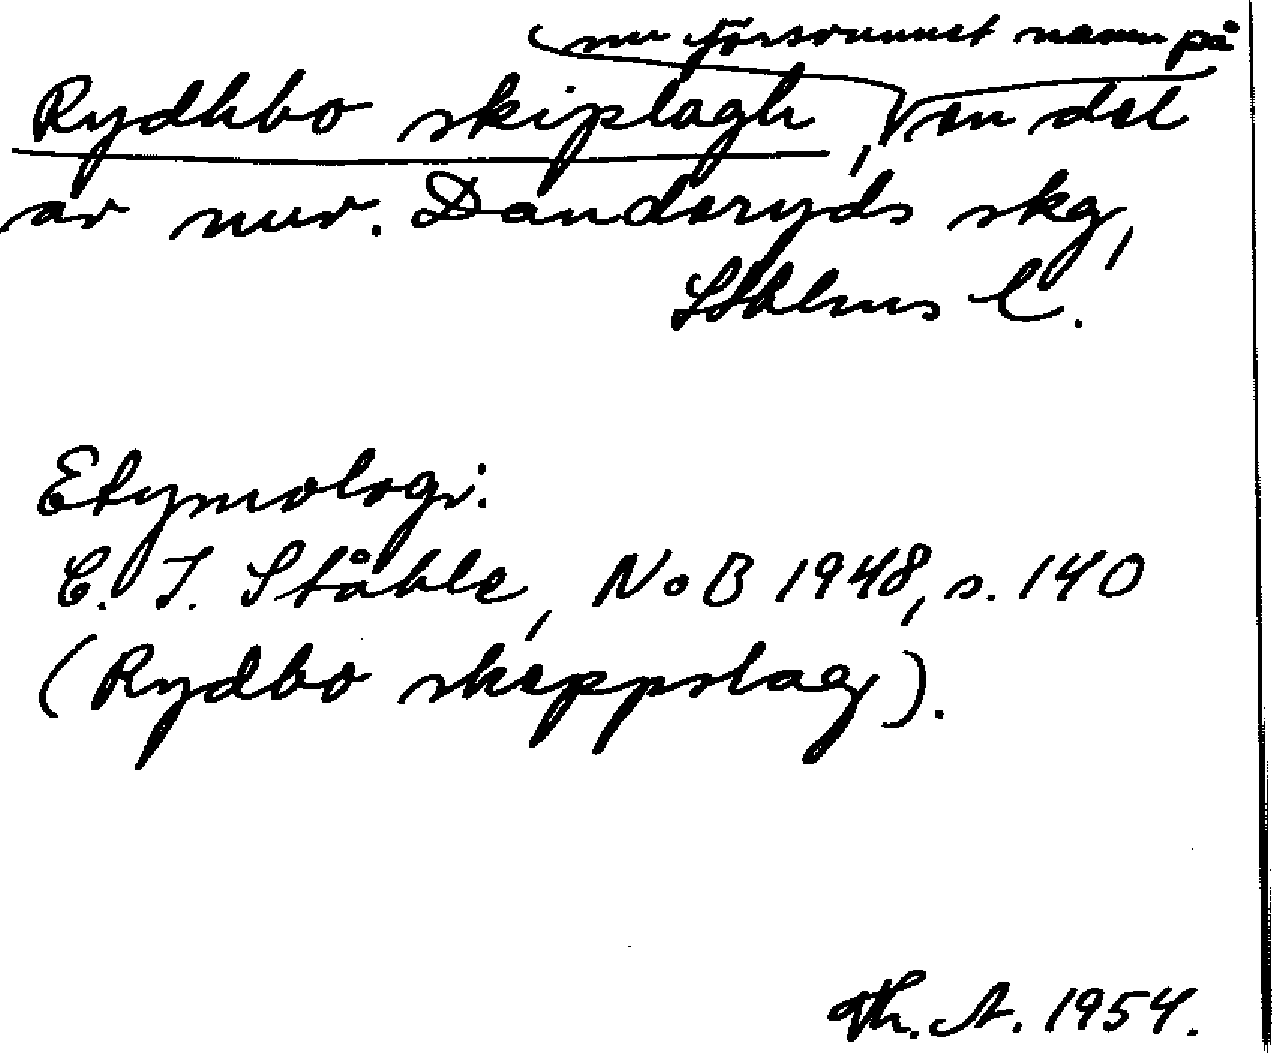 nu försvunnet namn på
Rydhbo skiplagh, en del
av nuv. Danderyds skg,
Sthlms l.
Etymologi:
C. I. Ståhle, NoB 1948, s. 140
(Rydbo skeppslag).
Th. A. 1954.